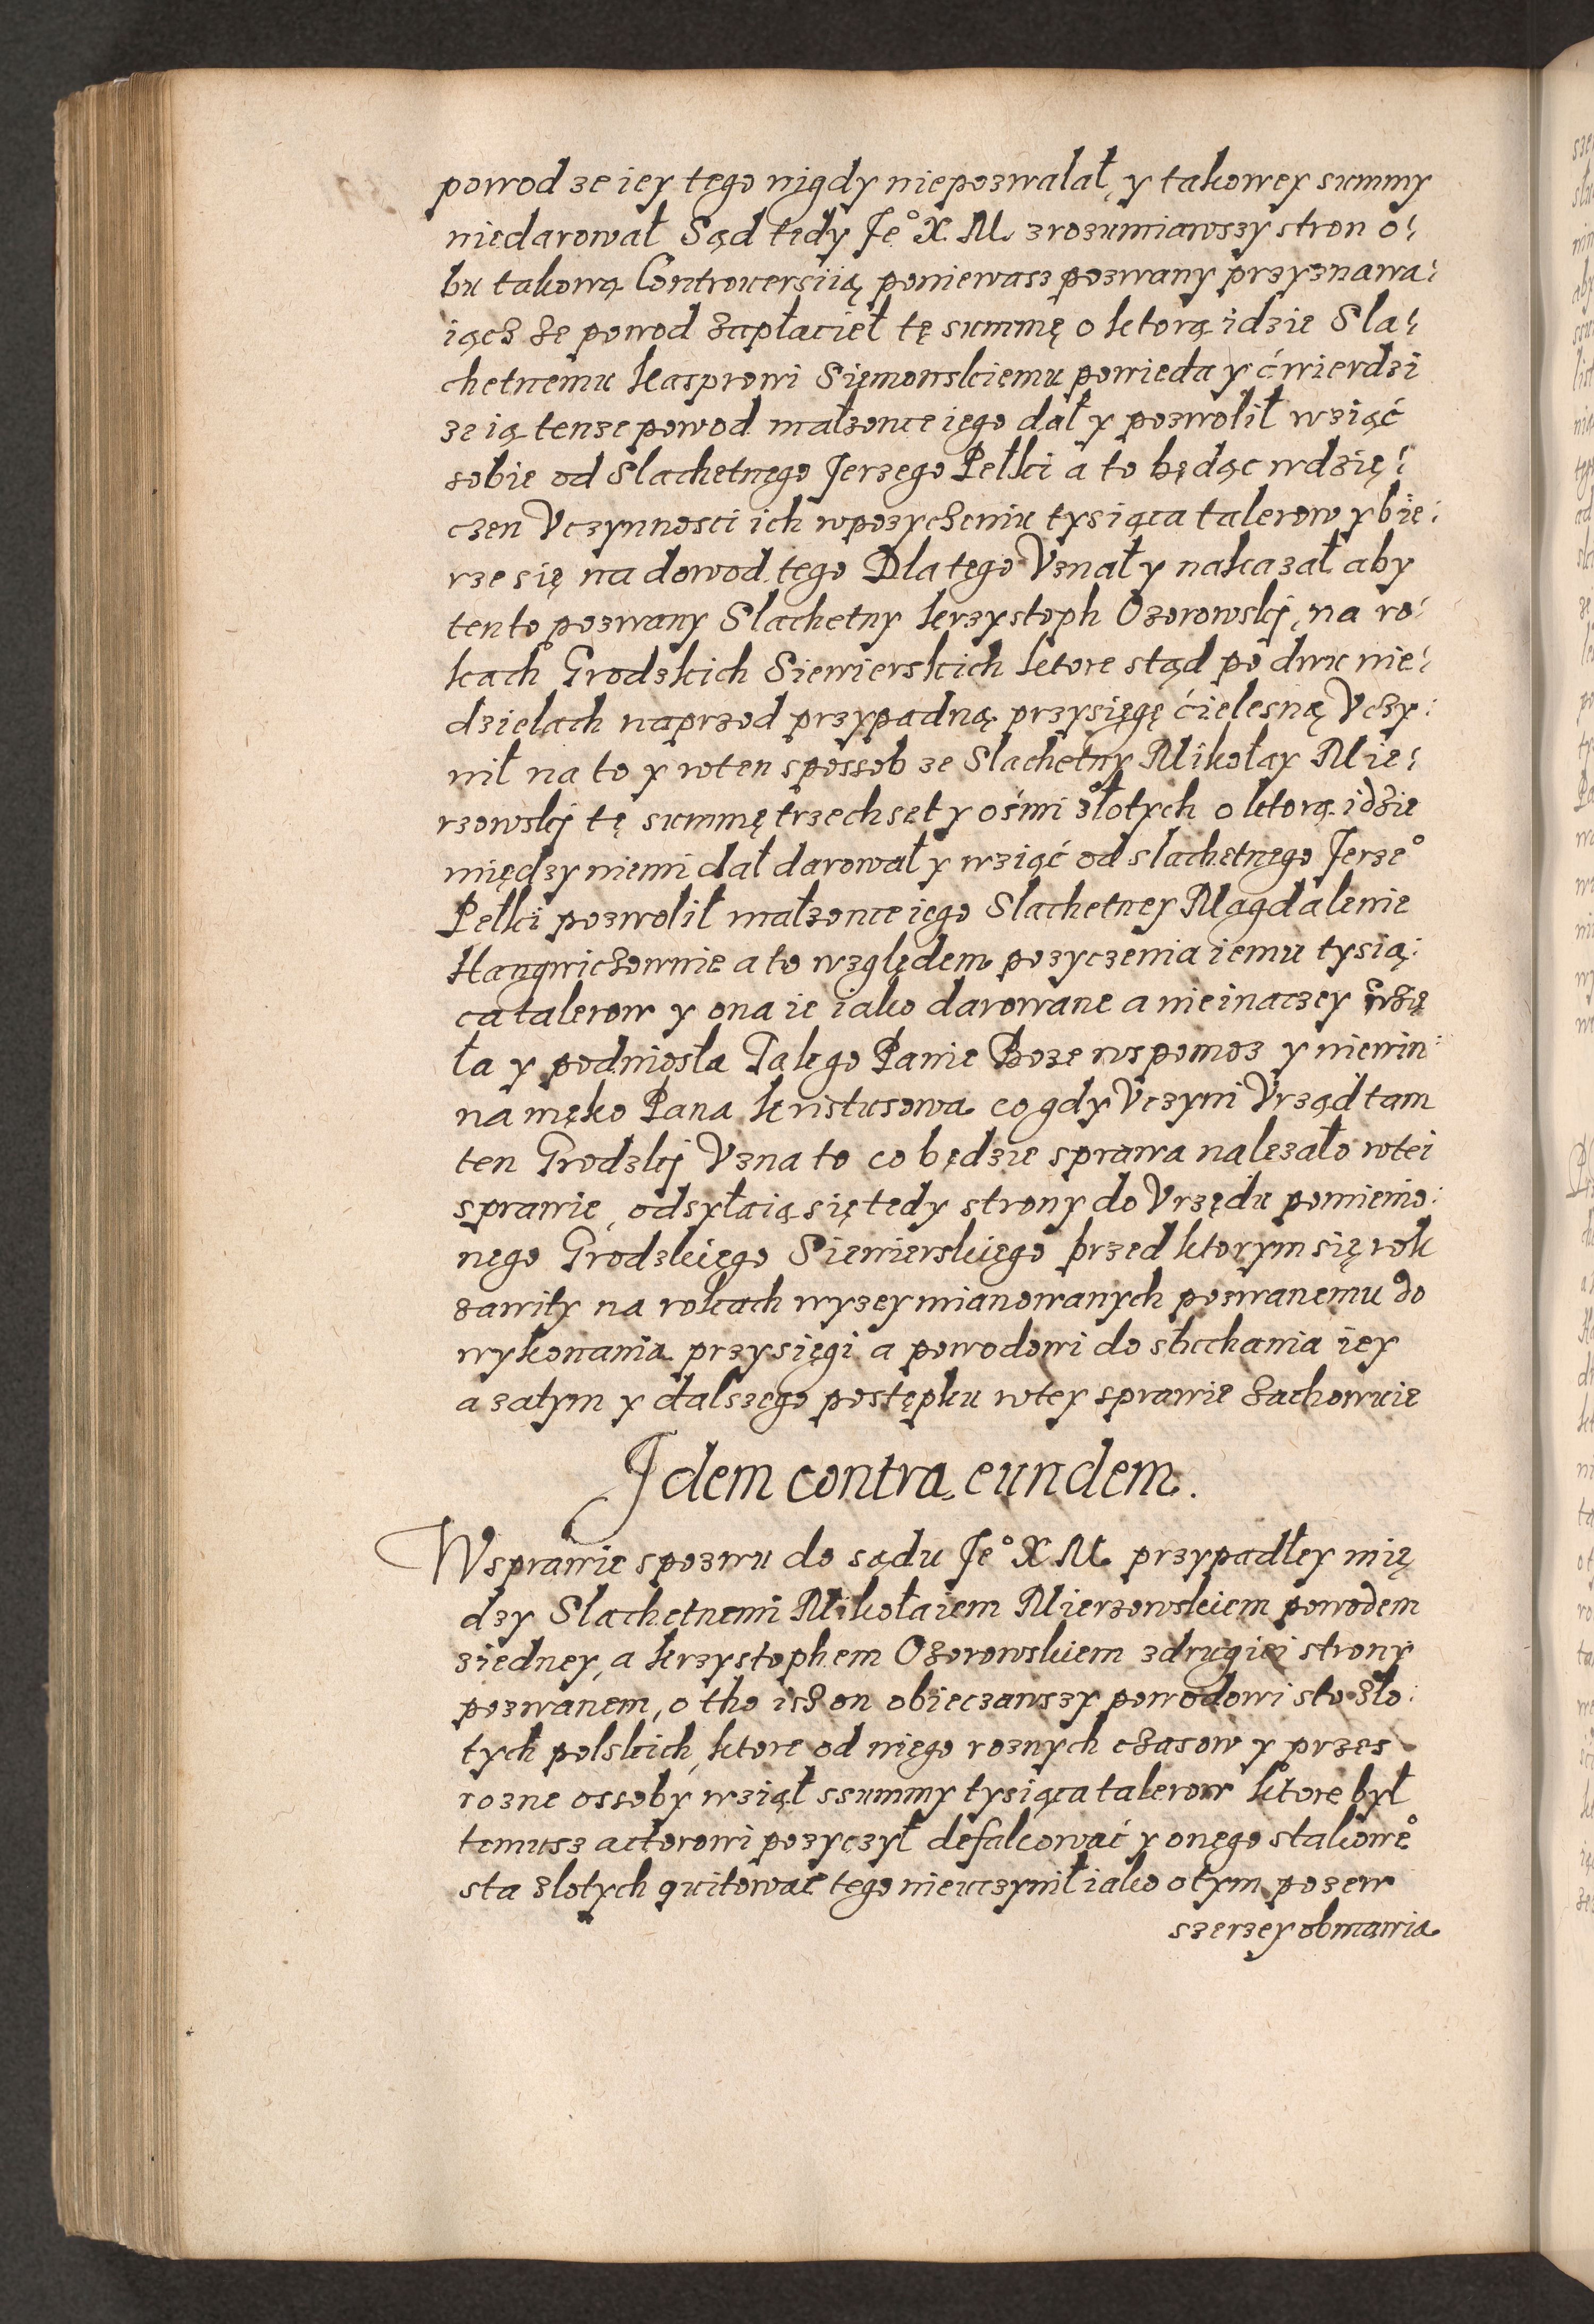 powod ze iey tego nigdy niepozwalał, y takowey summy
niedarował Sąd tedy Jeº X. M. zrozumiawszy stron o:
bu takową Controuersiią, poniewasz pozwany przyznawa:
iącz że powod zapłacieł tę summę o ktorą idzie Sla:
chetnemu Kasprowi Sięmonskiemu powieda y ćwierdzi
ze ią tenze powod małzonce iego dał y pozwolił wziąć
sobie od Slachetnego Jerzego Pełki a to będąc wdzię:
czen Vczynnosci ich wpozyczeniu tysiąca talerow y bie:
rze się na dowod tego Dla tego Vznał y nakazał aby
tento pozwany Slachetny Krzystoph Ozorowskj, na ro:
kach Grodzkich Siewierskich ktore stąd po dwu nie:
dzielach naprzod przypadną przysięgę ćielesną Vczy:
nił na to y wten sposob ze Slachetny Mikołay Mie:
rzowskj tę summę trzechset y ośmi złotych o ktorą idzie
między niemi dał darował y wziąć od slachetnego Jerzeº
Pełki pozwolił małzonce iego Slachetney Magdalenie
Hangwiczownie a to względem pozyczenia iemu tysią:
ca talerow y ona ie iako darowane a nie inaczey wzię
ła y podniosła Tak go Panie Boze wspomoz y niewin:
na męko Pana Kristusowa co gdy Vczyni Vrząd tam
ten Grodzkj Vzna to co będzie sprawa nalezało wtei
sprawie, odsyłaią się tedy strony do Vrzędu pomienio:
nego Grodzkiego Siewierskiego przed ktorym się rok
zawity na rokach wyzey mianowanych pozwanemu do
wykonania przysięgi a powodowi do słuchania iey
a zatym y dalszego postępku wtey sprawie zachowuie
Jdem contra eundem.
Wsprawie spozwu do sądu Jeº X M. przypadłey mię
dzy Slachetnemi Mikołaiem Mierzowskiem powodem
ziedney, a Krzystophem Ozorowskiem zdrugiei strony
pozwanem, o tho isz on obieczawszy powodowi sto zło:
tych polskich, ktore od niego roznych czasow y przes
rozne ossoby wziął ssummy tysiąca talerow ktore był
temusz actorowi pozyczył defalcować y onego stakoweº
sta zlotych quitować tego nieuczynił iako otym pozew
szerzey obmawia